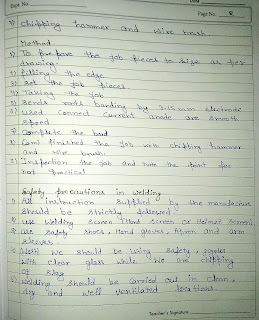 Date
Page No. 8
9) chipping hammer and wire brush
Method
1) To prepare the job pieces to size as per
drawing.
2) filling the edge
3) Set the job pieces
4) Taking the job
5) roots by 3.15 mm electrode
6) used current are smooth
speed
7) Complete the bead
8) finished the job with chipping hammer
and the brush
9) Inspection the job and note the point for
not practical
Safety precautions in welding
1) All instruction supplied by the manufacture
should be strictly
2) use welding screen (Hand Screen or Helmet Screen)
3) use safety shoes, Hand gloves, Apron and arm
sleeves.
4) we should be using safety goggles
with clear glass while we are chipping
of slag
5) welding should be carried out in clean,
dry and well ventilated locations.
Teacher's Signature